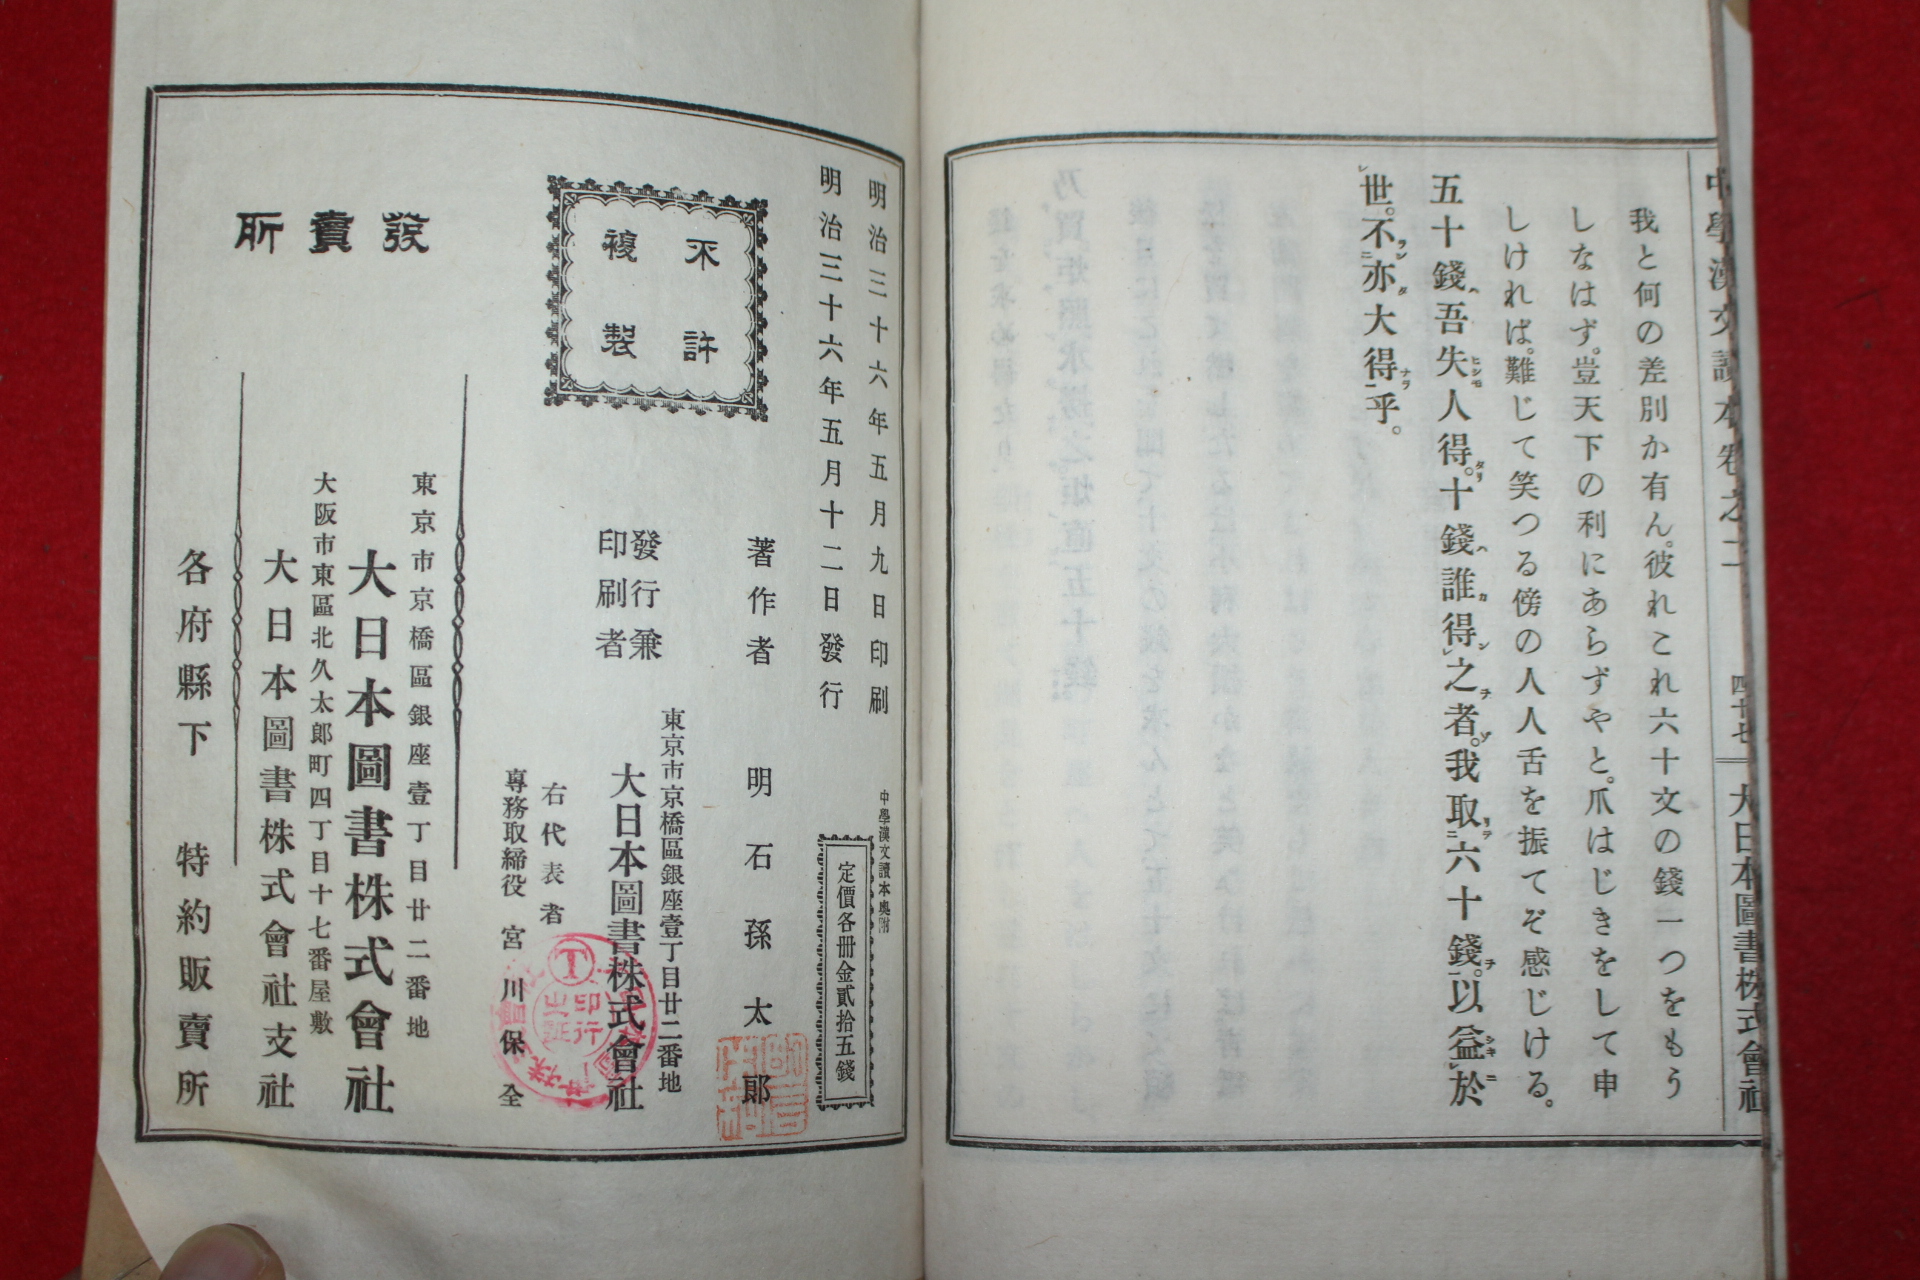 中學漢文讀本卷之二
四十七
大日本圖書株式會社
我と何の差別か有ん。彼れこれ六十文の錢一つをもう
しなはず。豈天下の利にあらずやと。爪はじきをして申
しければ。難じて笑つる傍の人人舌を振てぞ感じける。
五十錢吾失人得。十錢誰得之者。我取六十錢。以益於
世。不亦大得乎。
中學漢文讀本奧附
明治三十六年五月九日印刷
明治三十六年五月十二日發行
定價各冊金貳拾五錢
不許
複製
著作者 明石孫太郎
發行兼
印刷者
東京市京橋區銀座壹丁目廿二番地
大日本圖書株式會社
右代表者
專務取締役 宮川保全
發賣所
東京市京橋區銀座壹丁目廿二番地
大日本圖書株式會社
大阪市東區北久太郎町四丁目十七番屋敷
大日本圖書株式會社支社
各府縣下 特約販賣所